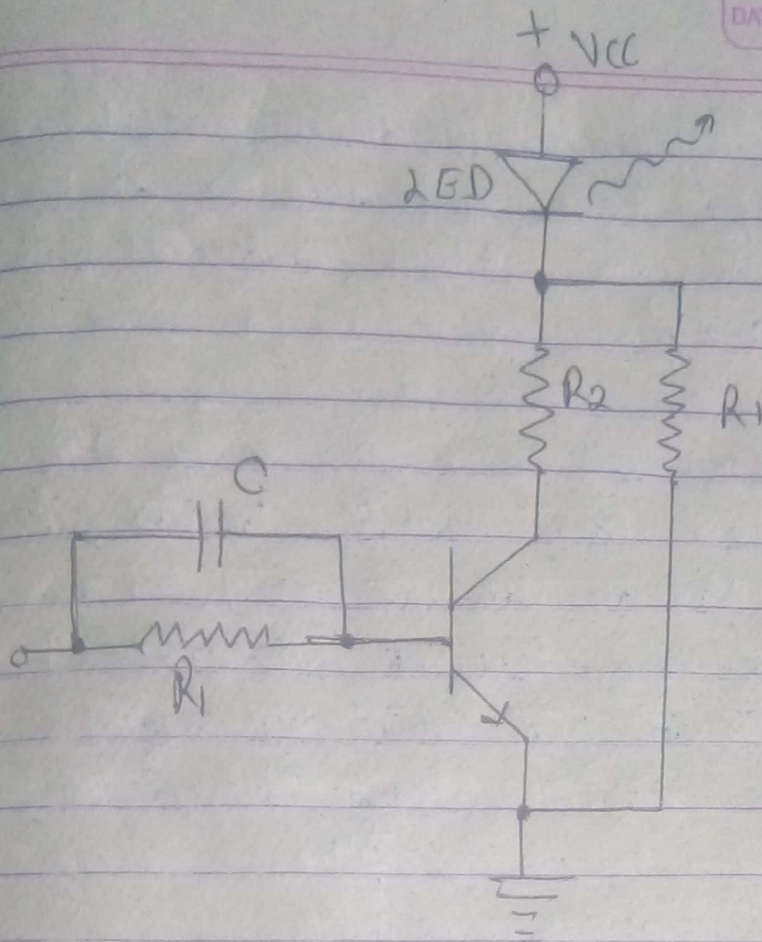 DA
+ VCC
LED
R2
R1
C
R1